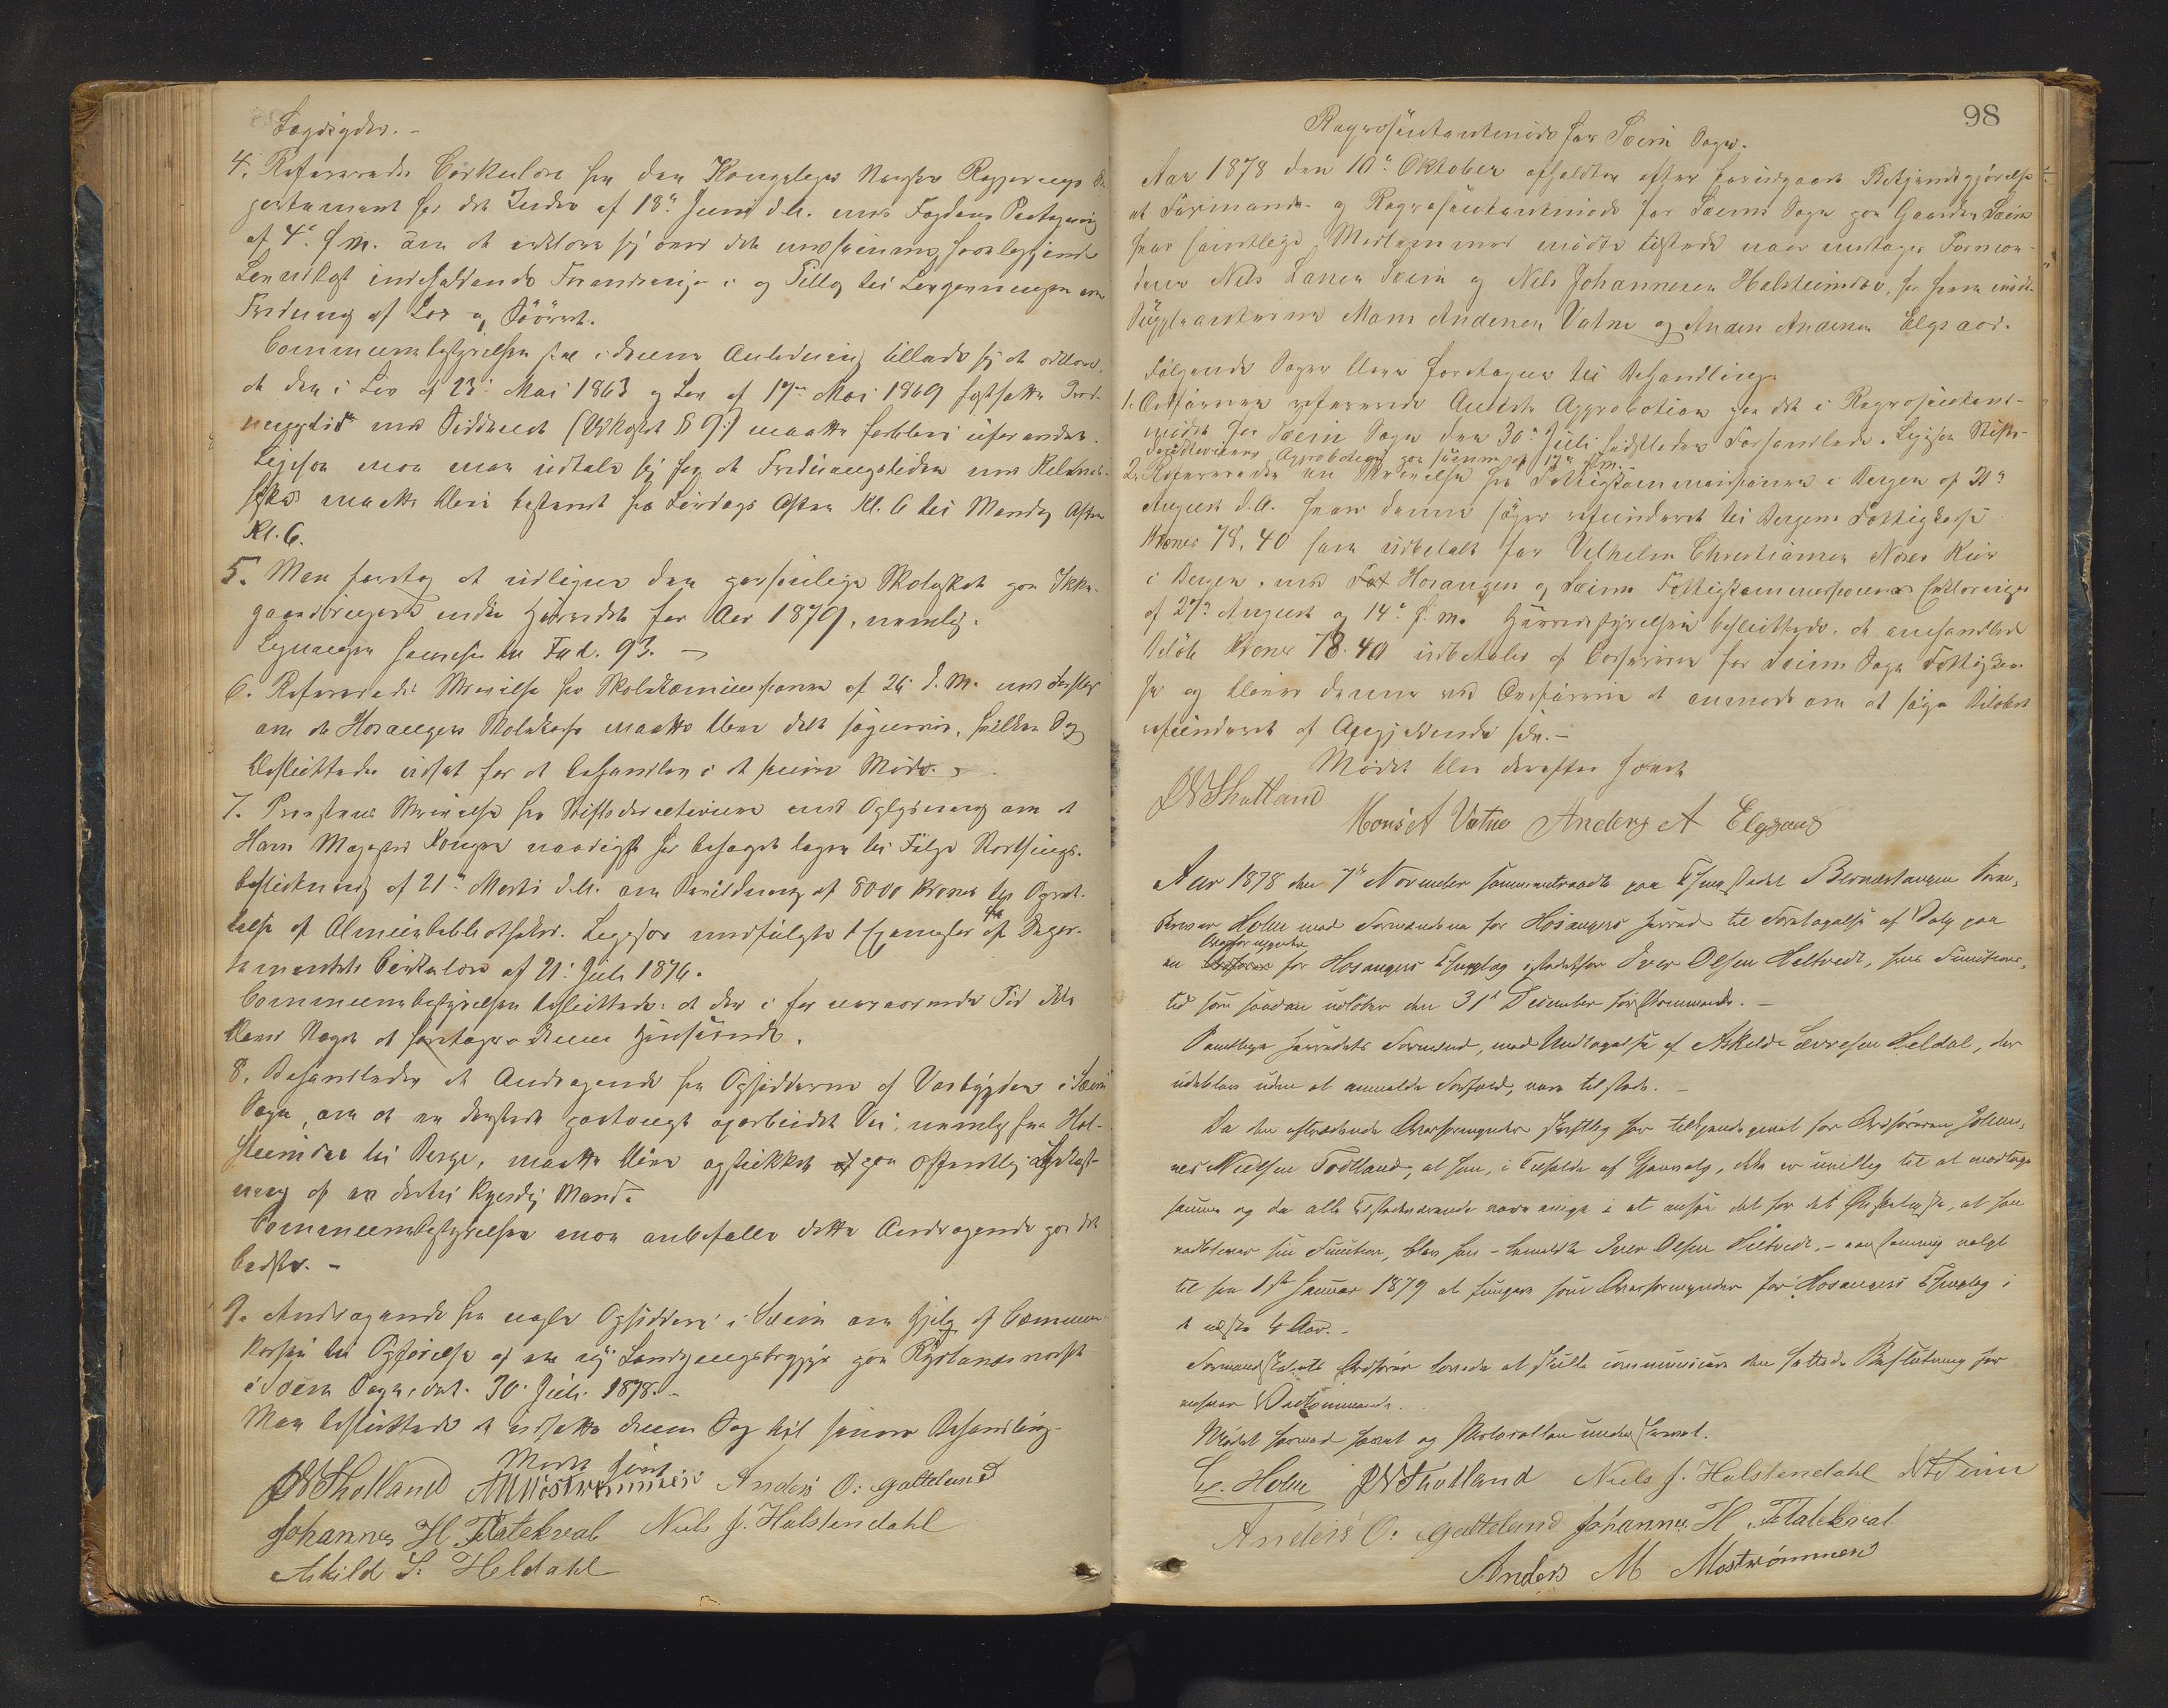 Bogbygden. -
4. Refereredes Cirkulære fra den Kongelige Norske Regjerings De-
partement for det Indre af 18de Juni d.A. med Fogdens Paategning
af 4de f.M. om at erklære sig over det medfølgende
Lovudkast indeholdende Forandringer i og Tillæg til Lovgivningen om
Fredning af Lax og Søørret.
Communebestyrelsen skal i denne Anledning tillade sig at erklære,
at den i Lov af 23de Mai 1863 og Lov af 17de Mai 1869 fastsatte Fred-
ningstid med Videre (Udkastet § 9) maatte forblive uforandret.
Ligesom man maa udtale sig for at Fredningstiden med Kilenot-
fiske maatte blive bestemt fra Lørdags Aften Kl. 6 til Mandag Aften
Kl. 6.
5. Man foretog at udligne den personlige Skoleskat paa Ikke-
gaardbrugere under Herredet for Aar 1879, nemlig:
Ligningen findes in Fol. 93.
6. Refereredes Skrivelse fra Skolekommissionen af 26 d.M. med Forslag
om at Hosangers Skolekasse maatte blive delt sogneviis, hvilken Sag
besluttedes udsat for at behandles i et senere Møde.
7. Provstens Skrivelse fra Stiftsdirectionen med Oplysning om at
Hans Majestæt Kongen naadigst har behaget tagen til Følge Storthings-
beslutning af 21de Marts d.A. om Bevilgning af 8000 Kroner til Opret-
telse af Almuebibliotheker. Ligesom medfulgte 1 Exemplar af Depar-
tementets Cirkulære af 21de Juli 1876.
Communebestyrelsen besluttede: at der i for nærværende Tid ikke
bliver Noget at foretage i denne Henseende.
8. Behandledes et Andragende fra Opsidderne af Vasbygden i Sæim
Sogn, om at en derstedt paatænkt oparbeidet Vei, nemlig fra Hol-
steindal til Berge, maatte blive opstukket paa offentlig Bekost-
ning af en dertil kyndig Mand.
Communebestyrelsen maa anbefale dette Andragende paa det
bedste. -
9. Andragende fra nogle Opsiddere i Sæim om Hjælp af Commune-
kassen til Opførelse af en ny Landgangsbrygge paa
i Sæim Sogn, dat. 30. Juli 1878. -
Man besluttede at udsætte denne Sag til senere Behandling.
Mødet hævet
JNThotland AMMostrømmen Anders O: Gatteland
Johannes H Flatekval Niels J. Halstendahl
Askild S. Heldahl
98
Repræsentantmøde for Sæim Sogn.
Aar 1878 den 10de Oktober afholdtes efter foregaaende Bekjendtgjørelse
et Formands- og Repræsentantmøde for Sæims Sogn paa Gaarden Sæim
hvor samtlige Medlemmer mødte tilstede naar undtages Formæn-
dene Nils Larsen Sæim og Nils Johannesen Holsteindal, for hvem mødte
Suppleanterne Mons Andersen Vatne og Anders Andersen Elgsaas.
Følgende Sager blev foretagne til Behandling:
1. Ordføreren refererede Amtets Approbation paa det i Repræsentant-
mødet for Sæim Sogn den 30te Juli sidstleden Forhandlede. Ligesom Stifts-
Direktionens Approbation paa samme af 17de f.M.
2. Refereredes en Skrivelse fra Fattigkommissionen i Bergen af 21de
August d.A. hvori denne søger refunderet til Bergens Fattigkasse
Kroner 78,40 som udbetalt for Vilhelm Christiansen Næs Kiær
i Bergen, med Hosanger og Sæims Fattigkommissioners Erklæringer
af 27de August og 14de f.M. Herredsstyrelsen besluttede, at omhandlede
Beløb Kroner 78.40 udbetales af Kassereren for Sæims Sogn Fattigkas-
se og bliver denne ved Ordføreren at anmode om at søge Beløbet
refunderet af Angjældende selv. -
Mødet blev derefter hævet
JNThotland Mons A Vatne Anders A Elgsaas
Aar 1878 den 7de November sammentraadte paa Thingstedet Bernestangen Soren-
skriver Holm med Formændene for Hosangers Herred til Foretagelse af Valg paa
Overformynder
en Ordfører for Hosangers Thinglag istedetfor Iver Olsen Heltvedt, hvis Functions-
tid som saadan udløber den 31te December førstkommende. -
Samtlige Herredets Formænd, med Undtagelse af Askilde Larsen Heldal, der
udeblev uden at anmelde Forfald, vare tilstede. -
Da den aftrædende Overformynder skriftlig har tilkjendegivet for Ordføreren Johan-
nes Nielsen Totland, at han, i Tilfælde af Gjenvalg, ikke er uvillig til at modtage
samme og da alle Tilstedeværende vare enige i at ansee det for det Ønskeligste, at han
vedbliver sin Function, blev han - bemeldte Iver Olsen Heltvedt, - eenstemmig valgt
til fra 1ste Januar 1879 at fungere som Overformynder for Hosangers Thinglag i
de næste 4 Aar. -
Formandskabets Ordfører lovede at skulle communicere den fattede Beslutning for
Vedkommende.
Mødet hermed hævet og Protocollen underskrevet.
C. Holm JNThotland Niels J. Halstendahl NLSeim
Anders O: Gatteland Johannes H Flatekval
Anders M Mostrømmen